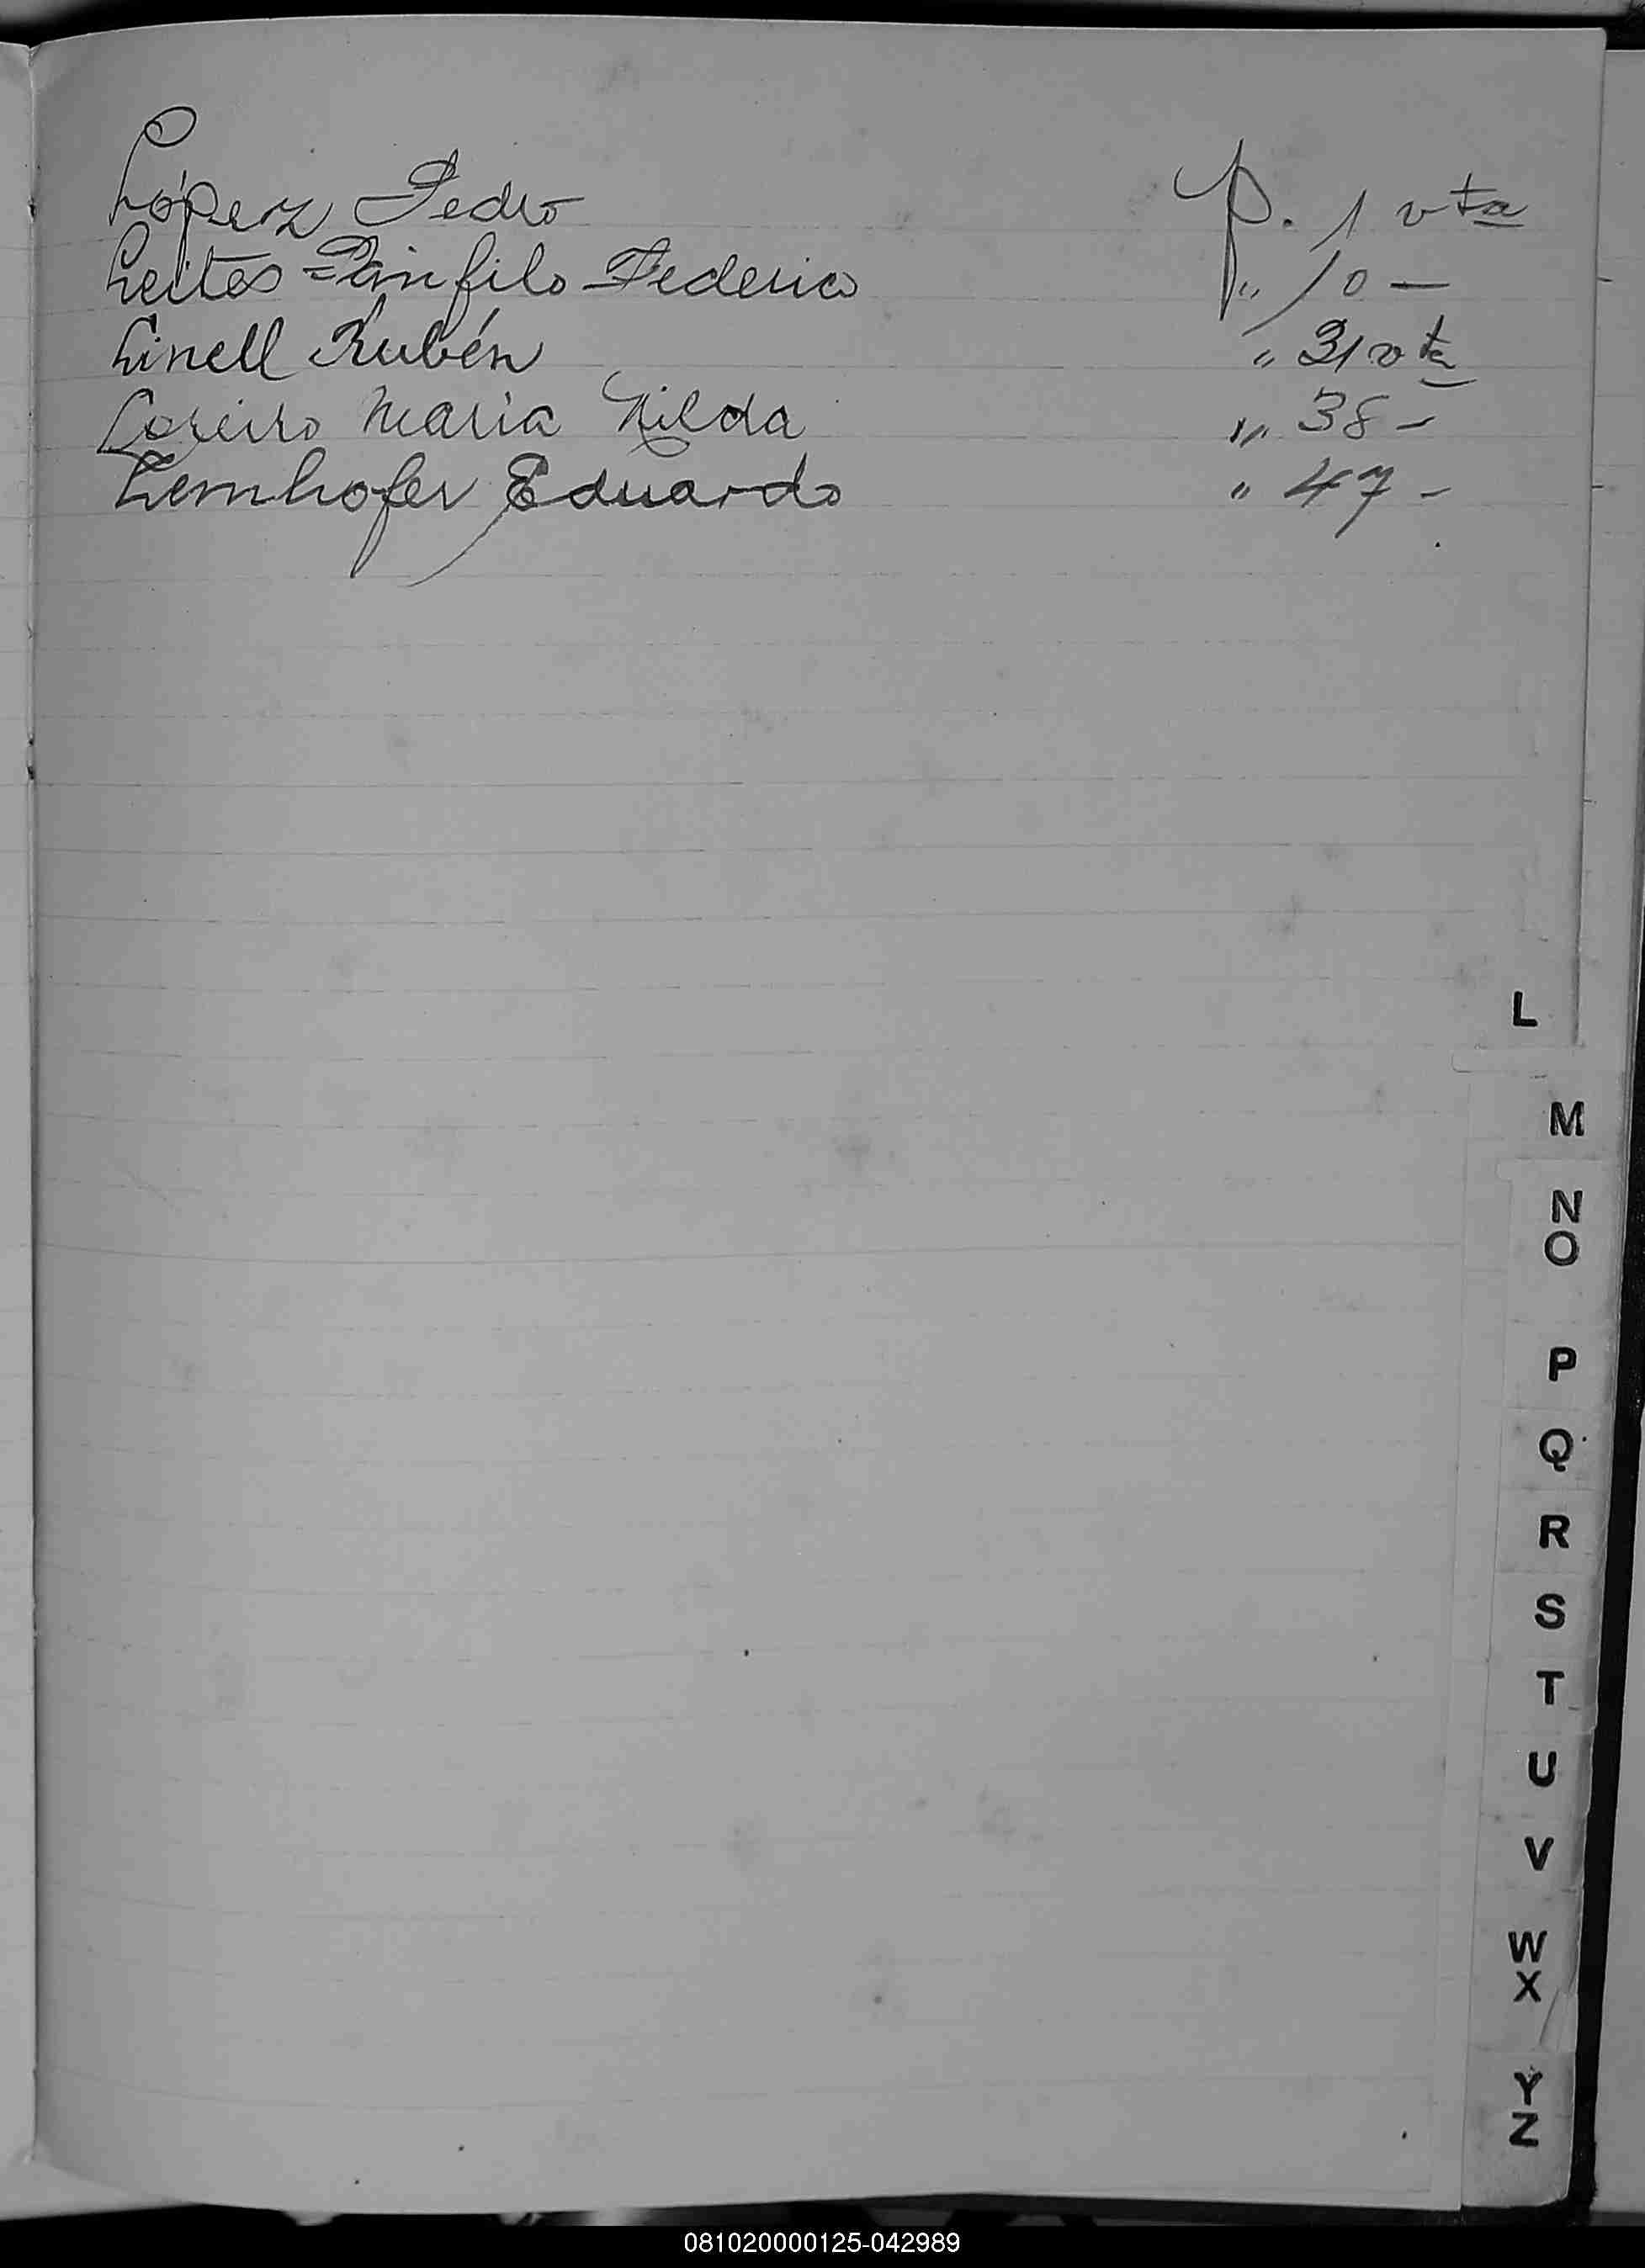 López Pedro p. 1 vta
Leites Pánfilo Federico " 10 —
Linell Rubén " 31 vta
Loreiro Maria Nilda " 38 -
Lemhofer Eduardo " 47 -
L
M
N
O
P
Q
R
S
T
U
V
W
X
Y
Z
081020000125-042989